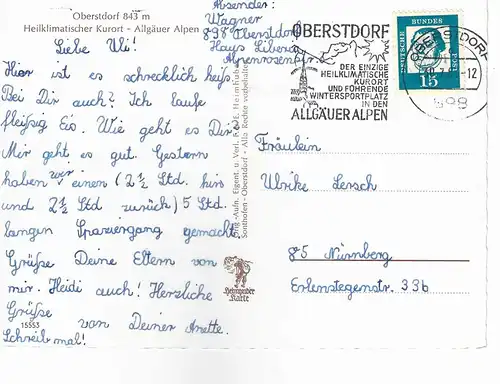 Oberstdorf 843 m
Heilklimatischer Kurort - Allgäuer Alpen
Absender:
Wagner
898 Oberstdorf
Haus Liberia
Alpenrosenstr.
Liebe Uli!
Hier ist es schrecklich heiß
Bei Dir auch? Ich laufe
fleißig Eis. Wie geht es Dir
Mir geht es gut. Gestern
haben wir einen (2 1/2 Std. hin
und 2 1/2 Std zurück) 5 Std.
langen Spaziergang gemacht.
Grüße Deine Eltern von
mir. Heidi auch! Herzliche
Grüße
von Deiner Anette.
Schreib mal!
15553
Orig.-Aufn. Eigent. u. Verl. Heimhuber
Sonthofen - Oberstdorf - Alle Rechte vorbehalten
Heimhuber
Karte
OBERSTDORF
DER EINZIGE
HEILKLIMATISCHE
KURORT
UND FÜHRENDE
WINTERSPORTPLATZ
IN DEN
ALLGÄUER ALPEN
DEUTSCHE BUNDESPOST
15
OBERSTDORF
-12
898
Fräulein
Ulrike Lersch
85 Nürnberg
Erlenstegenstr. 33b